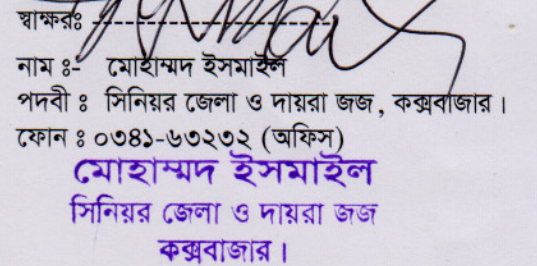 স্বাক্ষরঃ
নাম ঃ- মোহাম্মদ ইসমাইল
পদবী ঃ সিনিয়র জেলা ও দায়রা জজ, কক্সবাজার।
ফোন ঃ ০৩৪১-৬৩২৩২ (অফিস)
মোহাম্মদ ইসমাইল
সিনিয়র জেলা ও দায়রা জজ
কক্সবাজার।